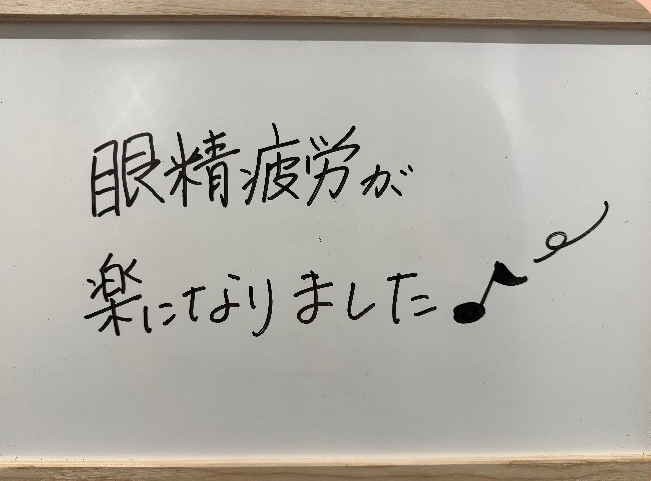 眼精疲労が
楽になりました♪